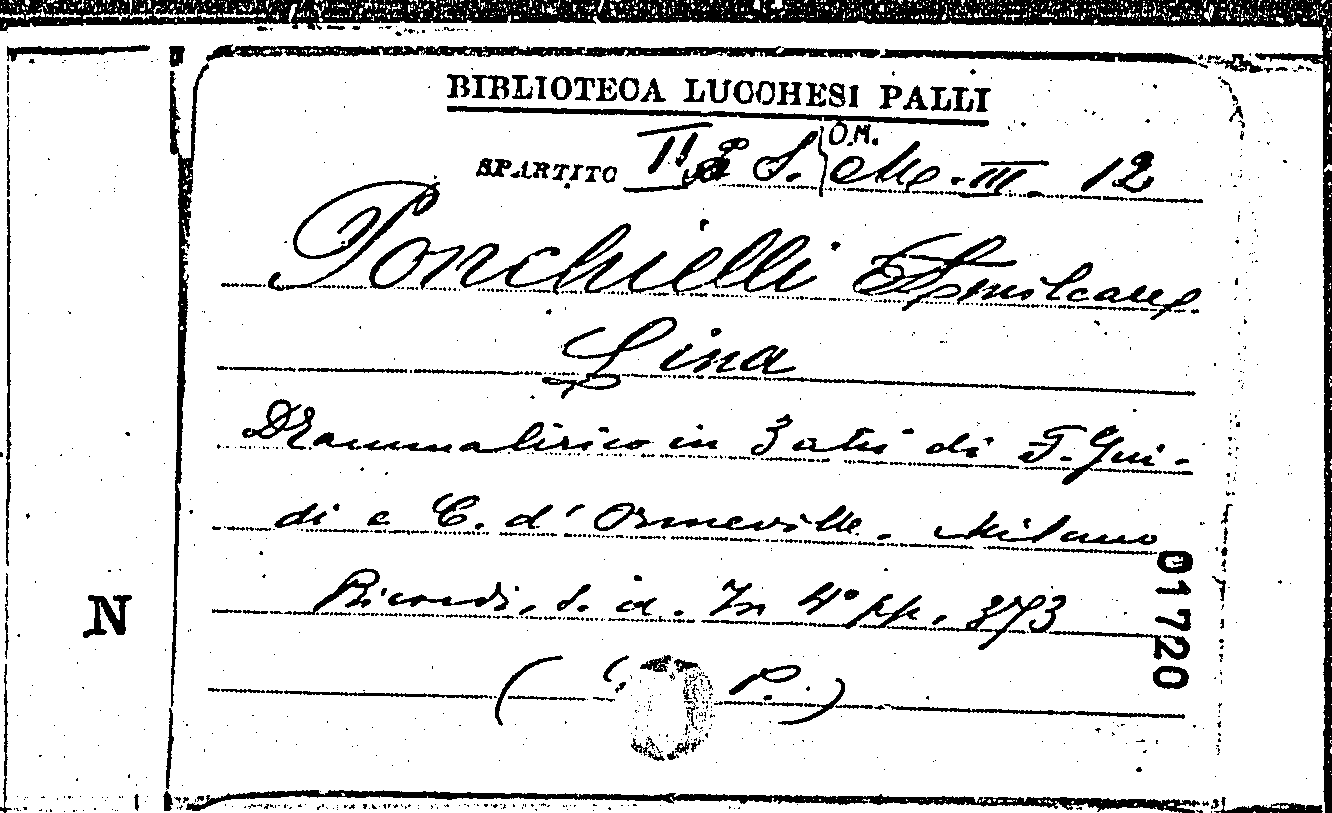 BIBLIOTECA LUCCHESI PALLI
SPARTITO II S. O.M. Me. III. 12
Ponchielli Amilcare
Lina
Dramma lirico in 3 atti di F. Gui-
di e C. d'Ormeville. Milano
Ricordi, s. d. In 4° pp. 373
( P. )
01720
N